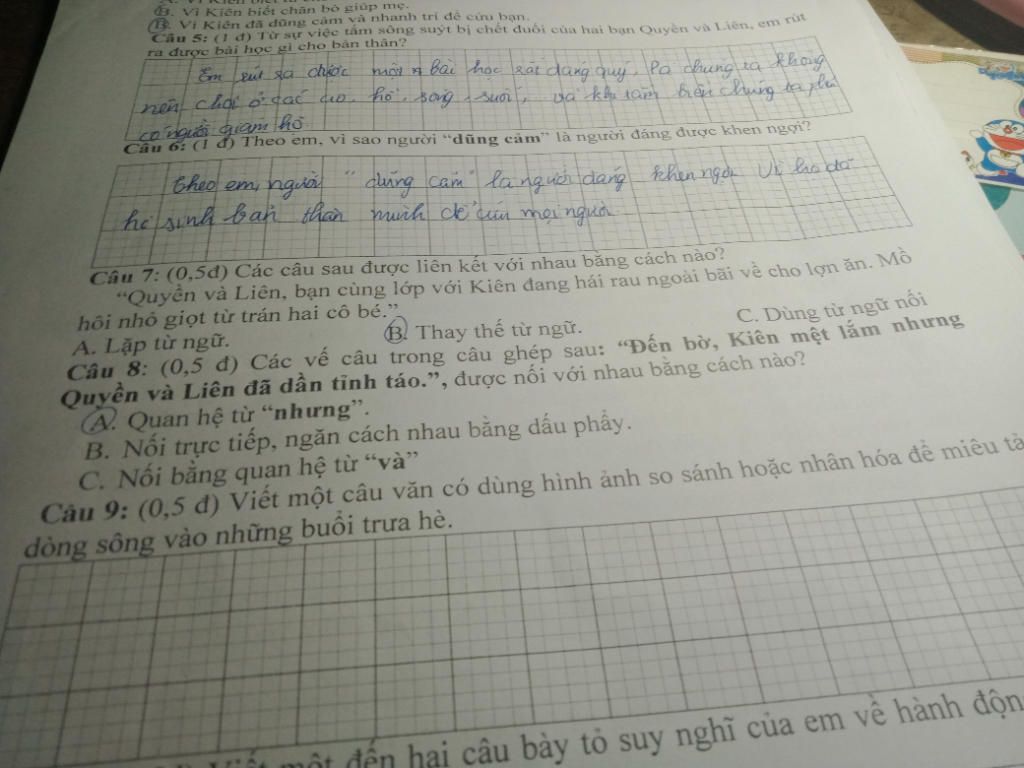 B. Vì Kiên biết chăn bò giúp mẹ.
B. Vì Kiên đã dũng cảm và nhanh trí để cứu bạn.
Câu 5: (1 đ) Từ sự việc tắm sông suýt bị chết đuối của hai bạn Quyền và Liên, em rút
ra được bài học gì cho bản thân?
Em rút ra được một bài học rất đáng quý, là chúng ta không
nên chơi ở các ao, hồ, sông, suối, và khi tắm biển chúng ta phải
có người giám hộ
Câu 6: (1 đ) Theo em, vì sao người "dũng cảm" là người đáng được khen ngợi?
theo em, người "dũng cảm" là người đáng khen ngợi vì họ đã
hi sinh bản thân mình để cứu mọi người
Câu 7: (0,5đ) Các câu sau được liên kết với nhau bằng cách nào?
"Quyền và Liên, bạn cùng lớp với Kiên đang hái rau ngoài bãi về cho lợn ăn. Mồ
hôi nhỏ giọt từ trán hai cô bé."
A. Lặp từ ngữ. B. Thay thế từ ngữ. C. Dùng từ ngữ nối
Câu 8: (0,5 đ) Các vế câu trong câu ghép sau: "Đến bờ, Kiên mệt lắm nhưng
Quyền và Liên đã dần tỉnh táo.", được nối với nhau bằng cách nào?
A. Quan hệ từ "nhưng".
B. Nối trực tiếp, ngăn cách nhau bằng dấu phẩy.
C. Nối bằng quan hệ từ "và"
Câu 9: (0,5 đ) Viết một câu văn có dùng hình ảnh so sánh hoặc nhân hóa để miêu tả
dòng sông vào những buổi trưa hè.
Viết một đến hai câu bày tỏ suy nghĩ của em về hành độn